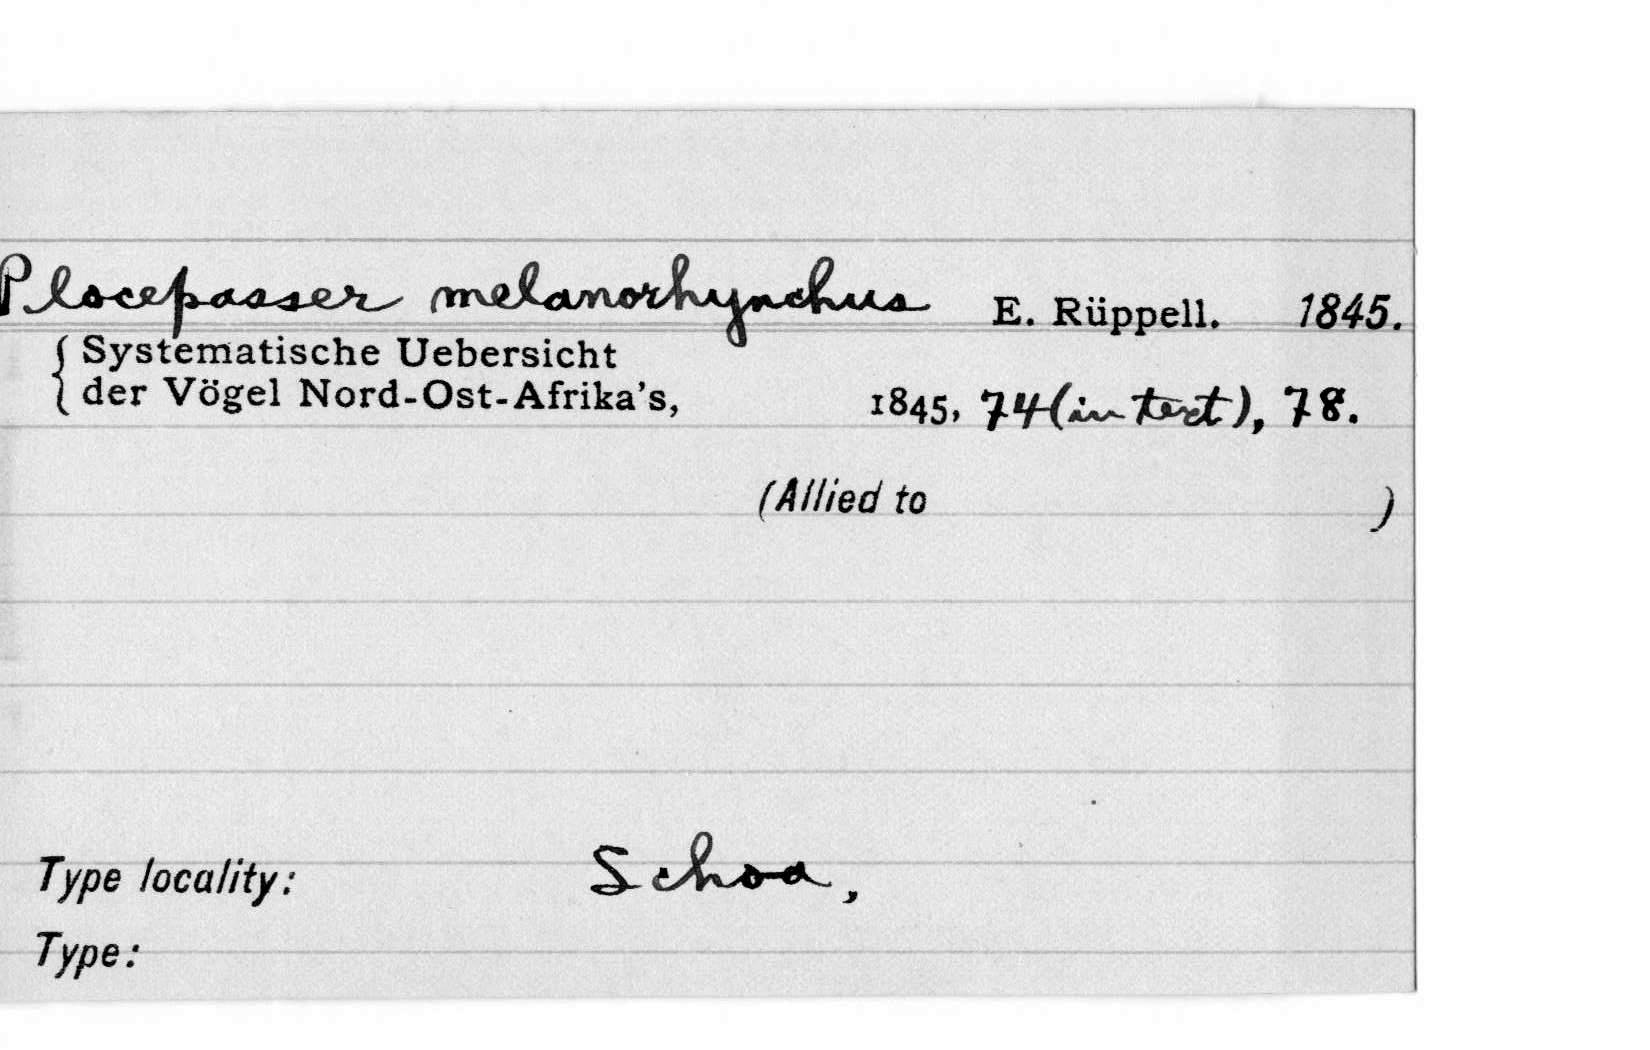 Plocepasser melanorhynchus E. Rüppell. 1845.
Systematische Uebersicht
der Vögel Nord-Ost-Afrika's, 1845, 74 (in text), 78.
(Allied to )
Type locality: Schoa,
Type: